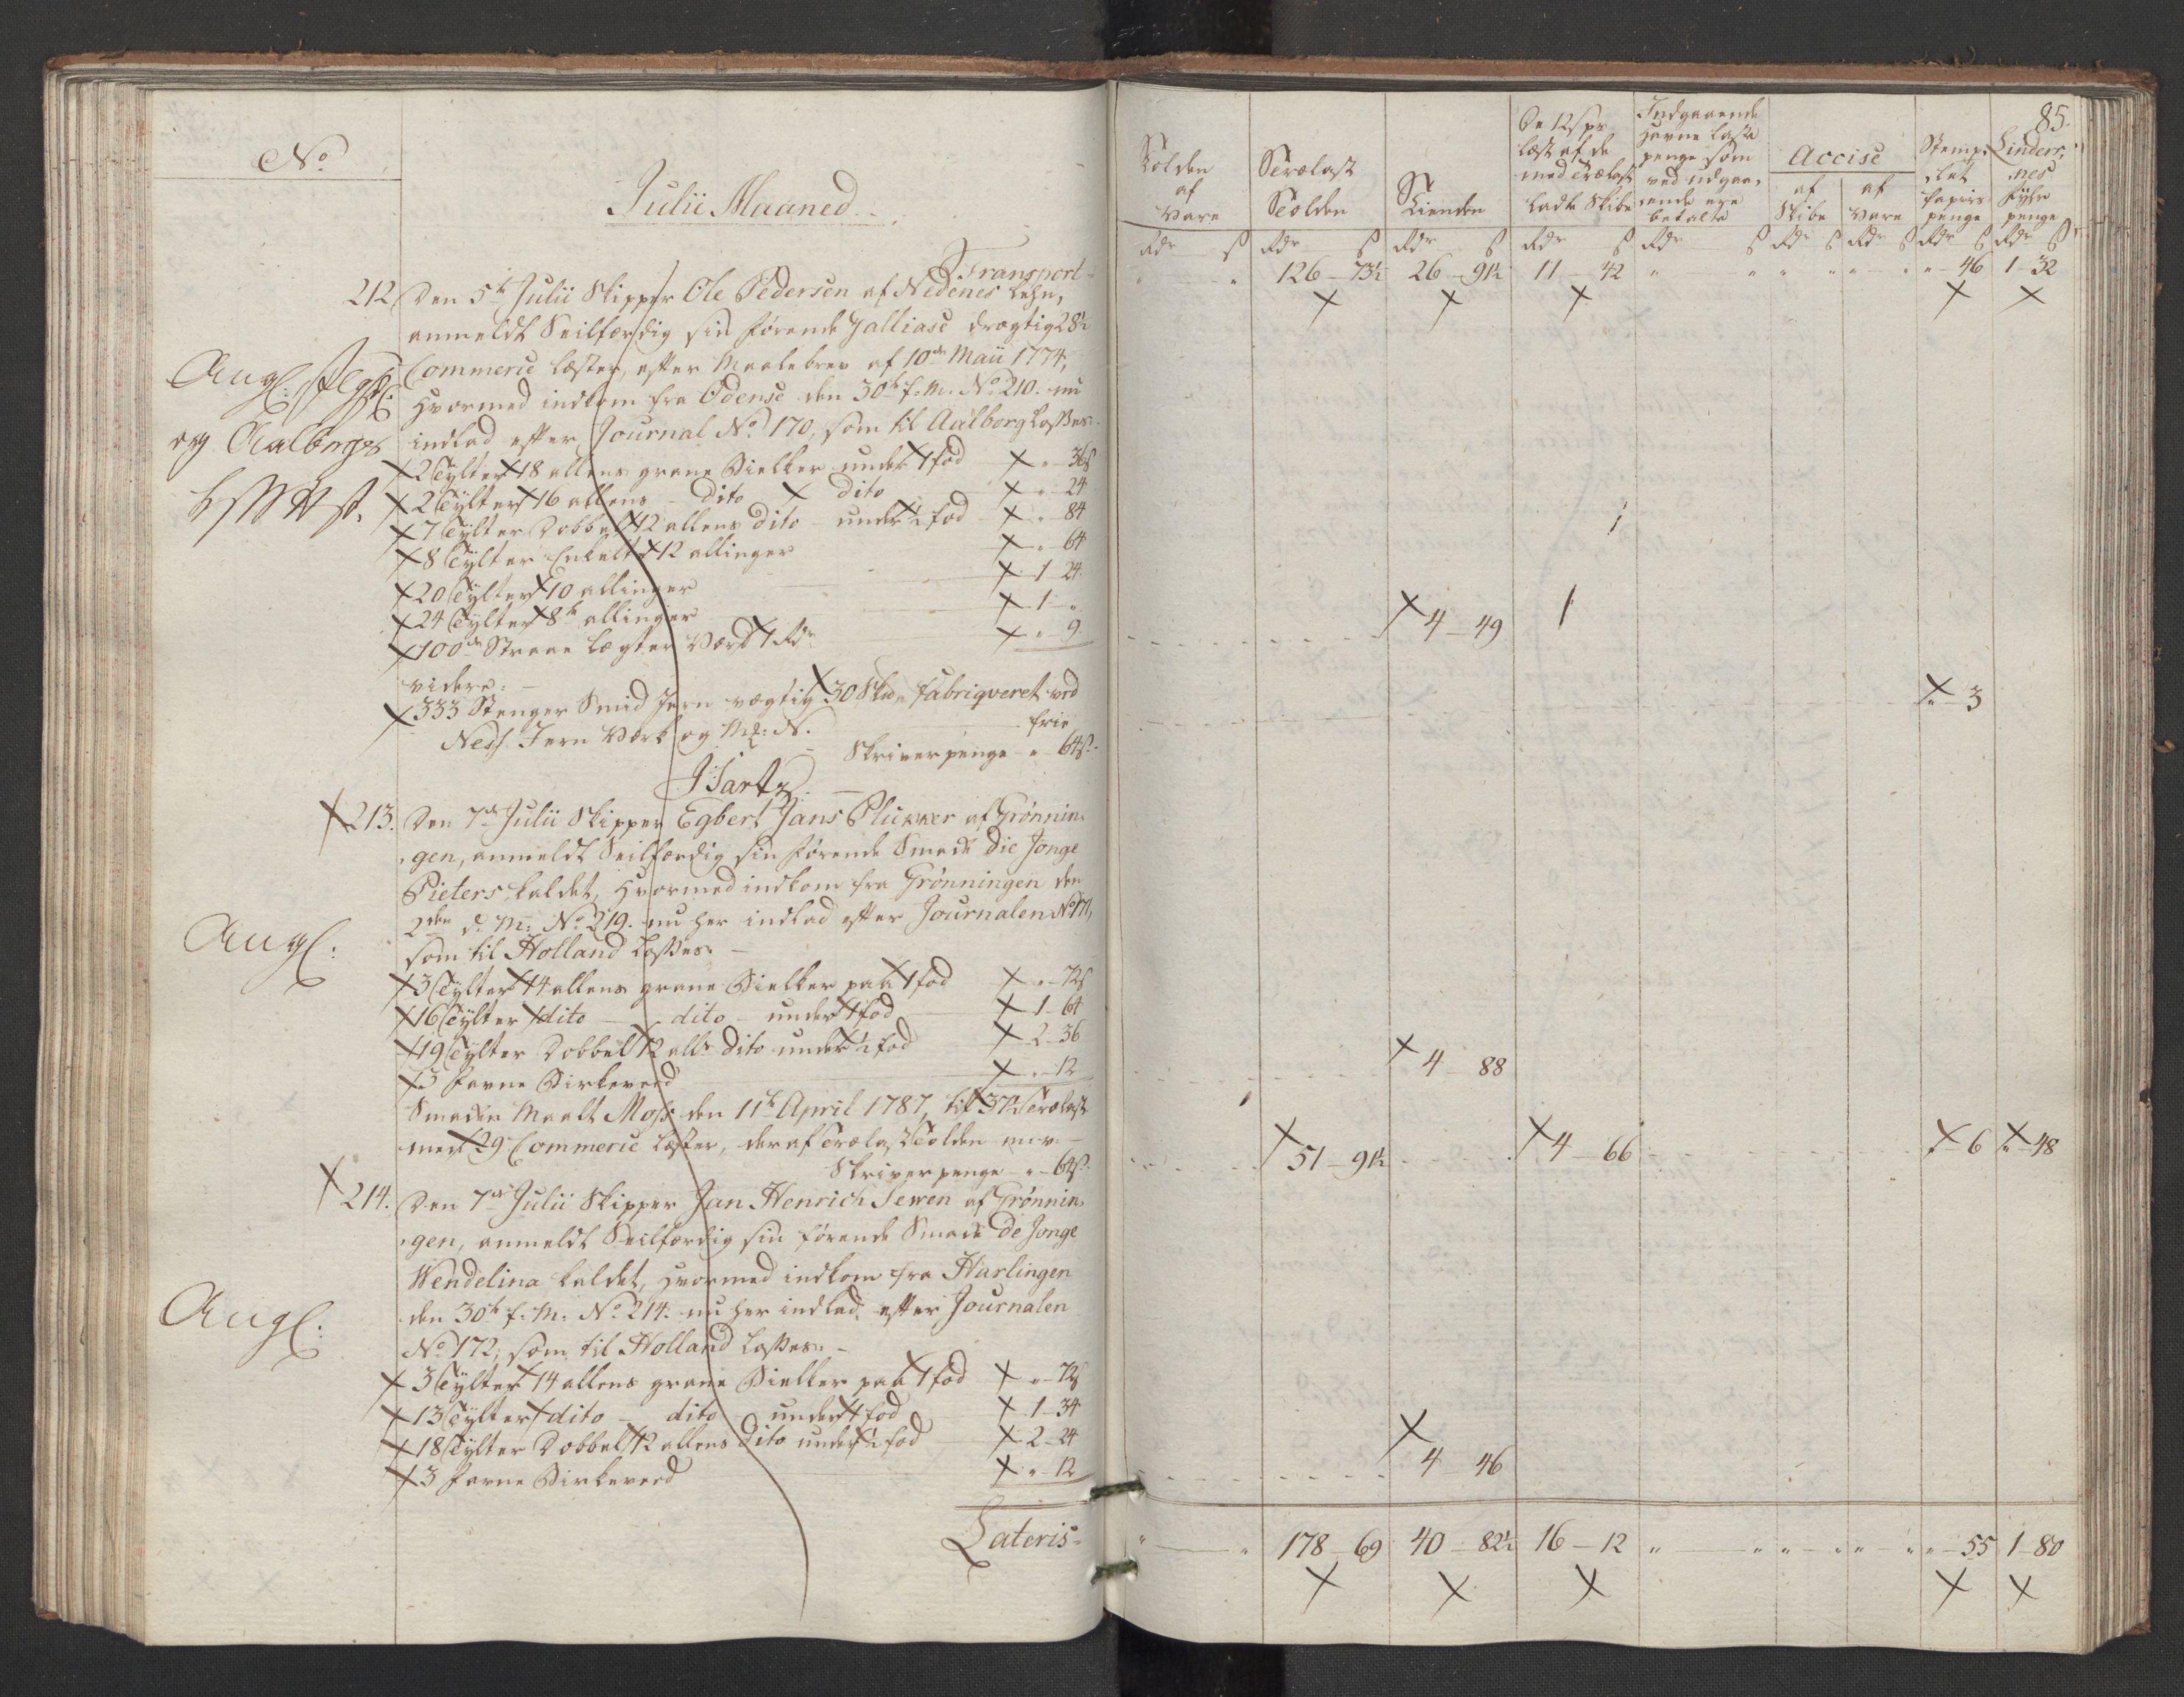 No
Julii Maaned
Transport
212. Den 5t Julii Skipper Ole Pedersen af Nedenes Lehn,
anmeldt Seilfærdig sin førende Jalliase drægtig 28½
Commerce læster, efter Maalebrev af 10de Maii 1774,
hvormed indkom fra Odense den 30t f: M: No 210. nu
indlad efter Journal No 170, som til Aalborg losses
Angl:
og Aalborgs
2 Tylter 18 allens grane Dielker under 1 fod " 36 s
2 Tylter 16 allens dito dito " 24
7 Tylter Dobbelt 12 allens dito under ½ fod " 84
8 Tylter Enkelte 12 allinger " 64
20 Tylter 10 allinger 1 24
24 Tylter 8t allinger 1 "
100de Straae Lægter Værd 1 Rdr " 9
videre:
333 Stenger Smid Jern vægtig 30 fabriqveret ved
Ness Jern Værk og Mk: N. frie
Skriverpenge " 64 s
213. Den 7de Julii Skipper Egbert Jans Plukker af Grønnin-
gen, anmeldt Seilfærdig sin førende Smack Die Jonge
Pieters kaldet, hvormed indkom fra Grønningen den
2den d: M: No 219. nu her indlad efter Journalen No 171,
som til Holland losses
Angl:
3 Tylter 14 allens grane Dielker paa 1 fod " 72 s
16 Tylter dito dito under 1 fod 1 64
19 Tylter Dobbel 12 all: dito under ½ fod 2 36
3 favne Birkeved " 12
Smacken Maalt Moss den 11t April 1787, til 37½ Trælast
med 29 Commerce læster, deraf Trælast Tolden
Skriverpenge " 64 s
214. Den 7de Julii Skipper Jan Henrich Sewen af Grønnin-
gen, anmeldt Seilfærdig sin førende Smack De Jonge
Wendelina kaldet, hvormed indkom fra Harlingen
den 30t f: M: No 214. nu her indlad efter Journalen
No 172, som til Holland losses
Angl:
3 Tylter 14 allens grane Dielker paa 1 fod " 72 s
13 Tylter dito dito under 1 fod 1 34
18 Tylter Dobbel 12 allens dito under ½ fod 2 24
3 favne Birkeved " 12
Lateris
85.
Tolden af Vare
Trælast Tolden
Tienden
De 12 s pr læst af de med Trælast ladte Skibe
Indgaaende Havne Laste penge som ved udgaaende ere betalte
Accise
af Skibe
af Vare
Stemplet Papirs penge
Lindersnes fyhr penge
Rdr s Rdr s Rdr s Rdr s Rdr s Rdr s Rdr s Rdr s Rdr s
" " 126 73½ 26 91½ 11 42 " " " " " " " 46 1 32
4 49
" 3
4 88
51 91½ 4 66 " 6 " 48
4 46
" " 178 69 40 82½ 16 12 " " " " " " " 55 1 80